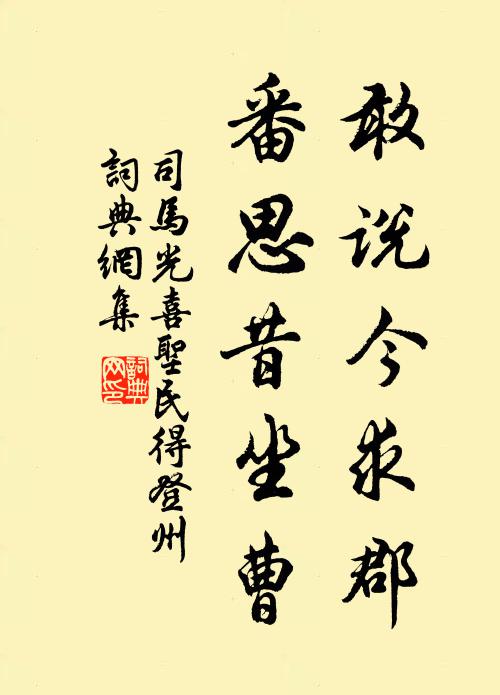 敢说今求郡
番思昔坐曹
司馬光喜聖民得登州
詞典網集
詞典网印